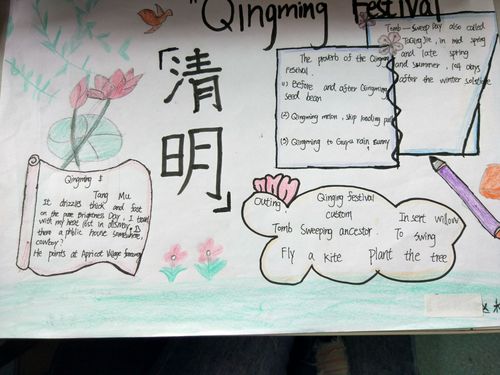 "Qingming Festival
「清明」
Tomb-Sweep Day also called
TaQing Jie, in mid spring
and late spring
and summer, 104 days
after the winter solstice
The proverb of the Qingming
Festival
(1) Before and after Qingming
seed bean
(2) Qingming melon, skip
(3) Qingming to Guyu rain, sunny
Qingming
Tang Mu
It drizzles thick and fast
on the pure Brightness Day, I travel
with my heart lost in dismay, Is
there a public house somewhere,
cowboy?
He points at Apricot Village faraway
Qinging festival
custom
Outing,
Insert willow
Tomb Sweeping ancestor.
To swing
Fly a kite
plant the tree